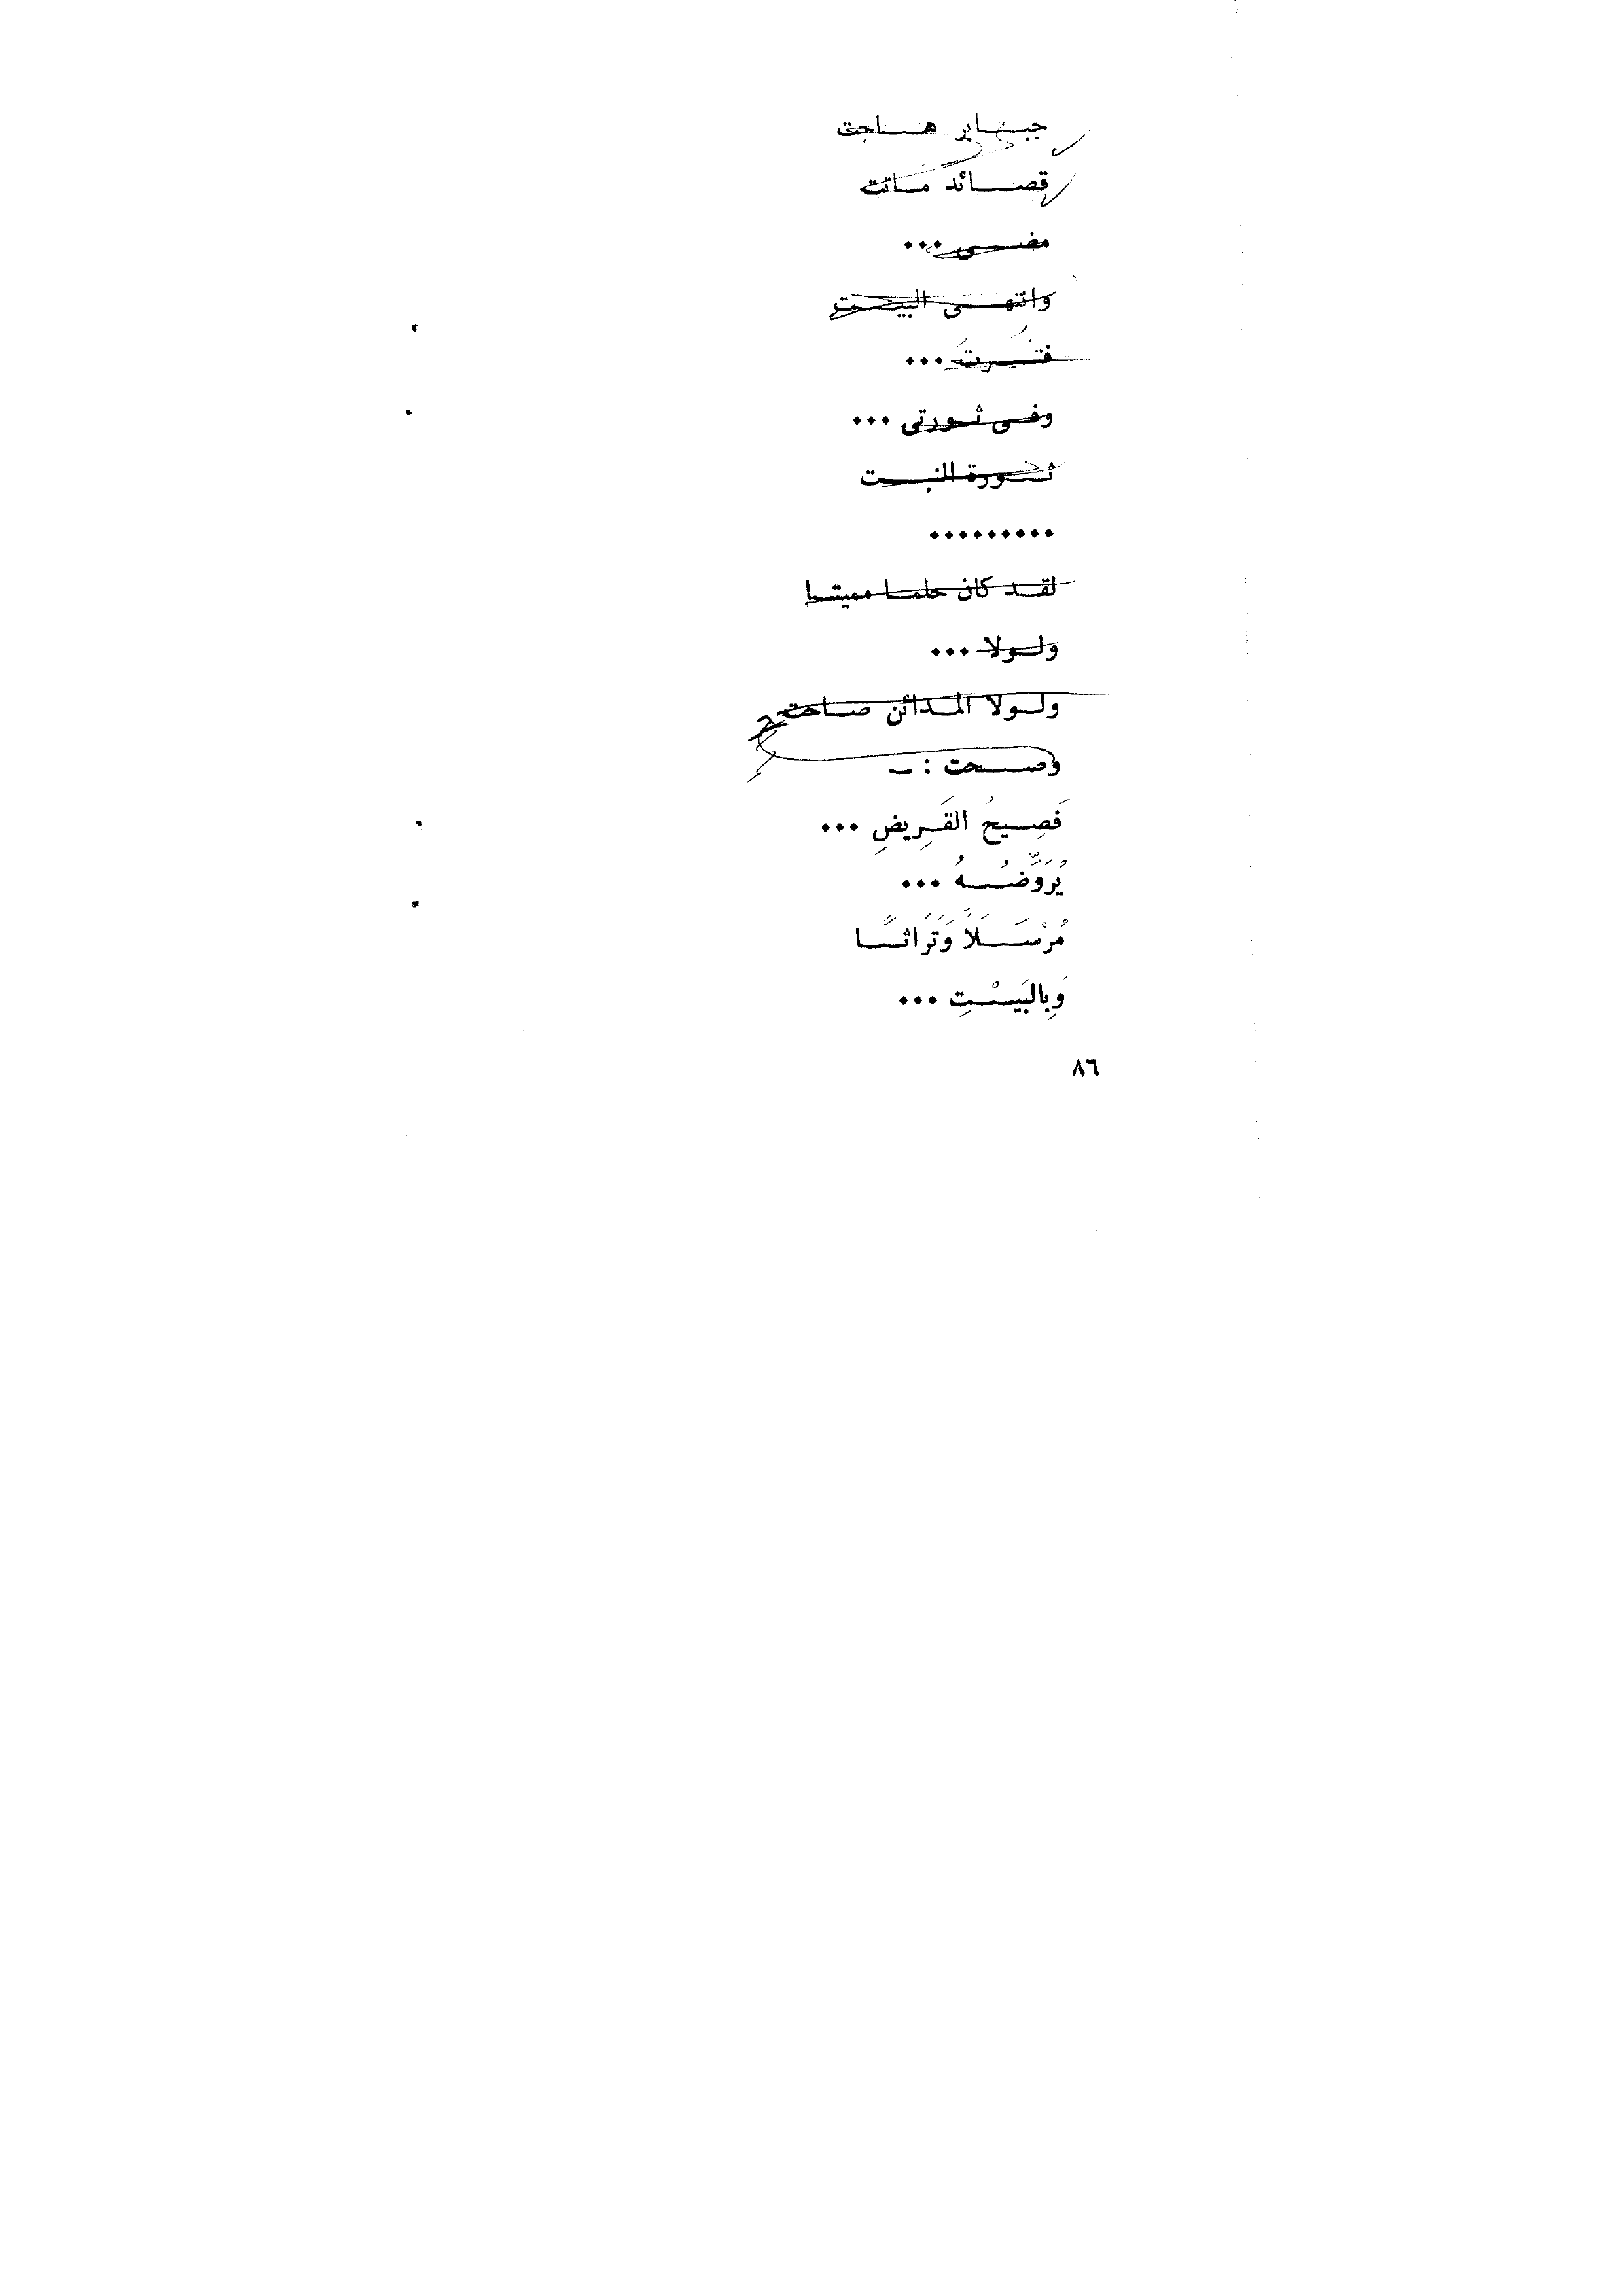 جبابر هاجت
قصائد ماتت
مضى ...
وانتهى البيت
فثرت ...
وفى ثورتى ...
ثورة النبت
.........
لقد كان حلما مميتا
ولولا ...
ولولا المدائن صاحت
وصحت : –
فَصِيحُ القَرِيضِ ...
يُرَوِّضُهُ ...
مُرْسَلاً وَتَراثًا
وَبِالبَيْتِ ...
٨٦